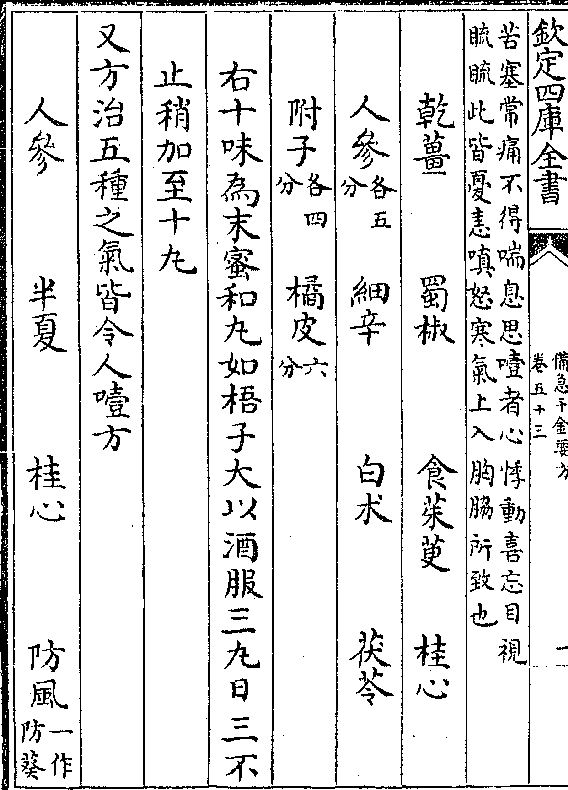 欽定四庫全書
備急千金要方
卷五十三
一
苦塞常痛不得喘息思噎者心悸動喜忘目視
䀮䀮此皆憂恚嗔怒寒氣上入胸脇所致也
乾薑 蜀椒 食茱萸 桂心
人參各五分 細辛 白朮 茯苓
附子各四分 橘皮六分
右十味為末蜜和丸如梧子大以酒服三丸日三不
止稍加至十丸
又方治五種之氣皆令人噎方
人參 半夏 桂心 防風一作防葵